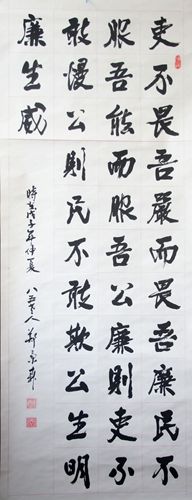 吏不畏吾嚴而畏吾廉民不
服吾能而服吾公廉則吏不
敢慢公則民不敢欺公生明
廉生威
時在戊子年仲夏 八五老人